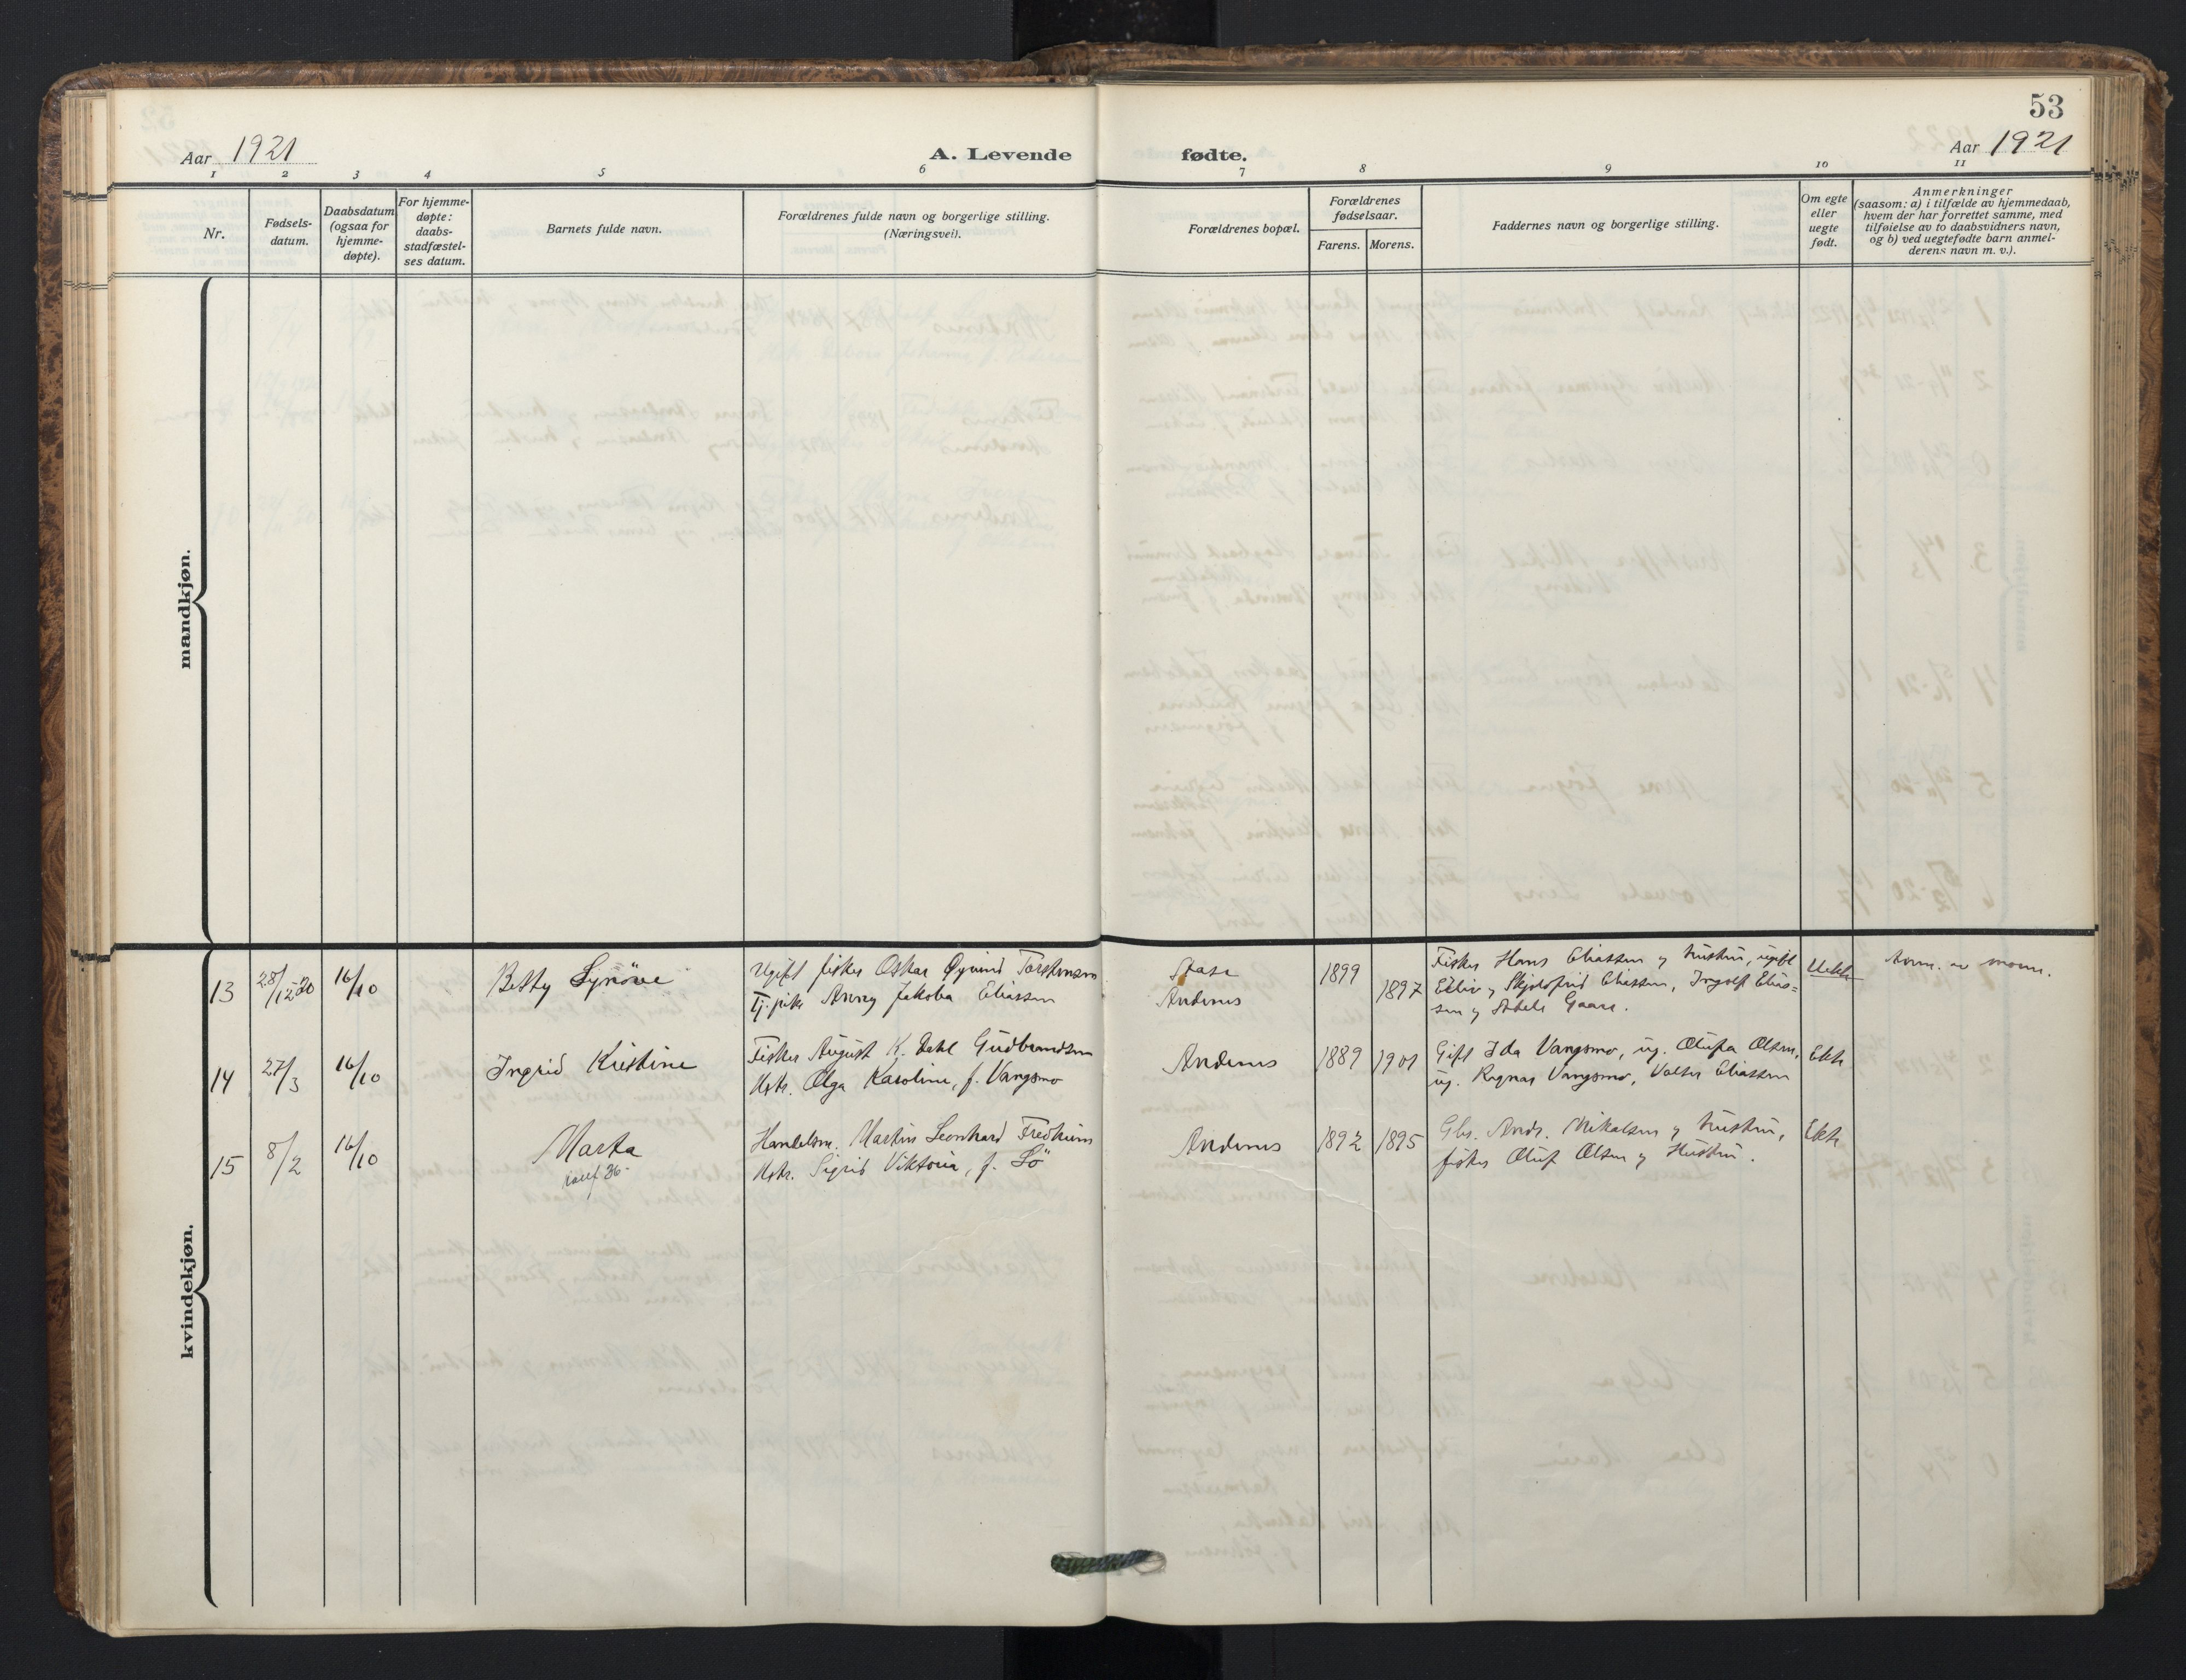 53
Aar 1921
A. Levende fødte.
Aar 1921
1 2 3 4 5 6 7 8 9 10 11
Nr.
Fødsels-
datum.
Daabsdatum
(ogsaa for
hjemme-
døpte).
For hjemme-
døpte:
daabs-
stadfæstel-
ses datum.
Barnets fulde navn.
Forældrenes fulde navn og borgerlige stilling.
(Næringsvei).
Forældrenes bopæl.
Forældrenes
fødselsaar.
Farens. Morens.
Faddernes navn og borgerlige stilling.
Om egte
eller
uegte
født.
Anmerkninger
(saasom: a) i tilfælde av hjemmedaab,
hvem der har forrettet samme, med
tilføielse av to daabsvidners navn,
og b) ved uegtefødte barn anmel-
derens navn m. v.).
mandkjøn.
kvindekjøn.
13 28/12-20 16/10 Betty Synöve
Ugift fisker Oskar Øyvind Torstensen
Tj.pike Anny Jakoba Eliassen
Andenes
1899
1897
Fisker Hans Eliassen og hustru, ugift
Eiliv og Skjoldfrid Eliassen, Ingolf Elias=
sen og Gaare.
Uekte
Anm. av moren.
14 27/3 16/10 Ingrid Kristine
Fisker August K. Dahl Gudbrandsen
Hstr. Olga Karoline, f. Vangsmo
Andenes
1889 1901
Gift Ida Vangsmo, ug. Olufa Olsen,
ug. Ragnar Vangsmo, Valter Eliassen
Ekte
15 8/2 16/10 Marta
Handelsm. Martin Leonhard Fredheim
Hstr. Sigrid Viktoria, f. Sö
Andenes
1892 1895
Gbr. Andr. Mikalsen og hustru,
fisker Oluf Olsen og Hustru.
Ekte